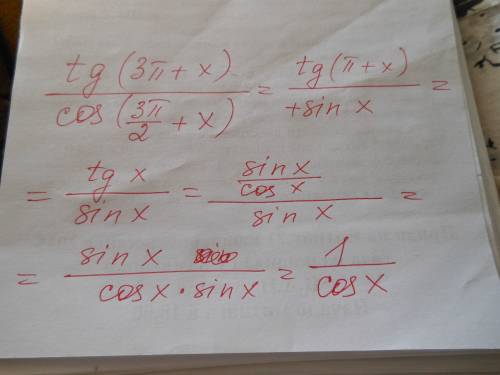 tg (3π + x) / cos (3π/2 + x) = tg (π + x) / +sin x =
= tg x / sin x = (sin x / cos x) / sin x =
= sin x / cos x · sin x = 1 / cos x